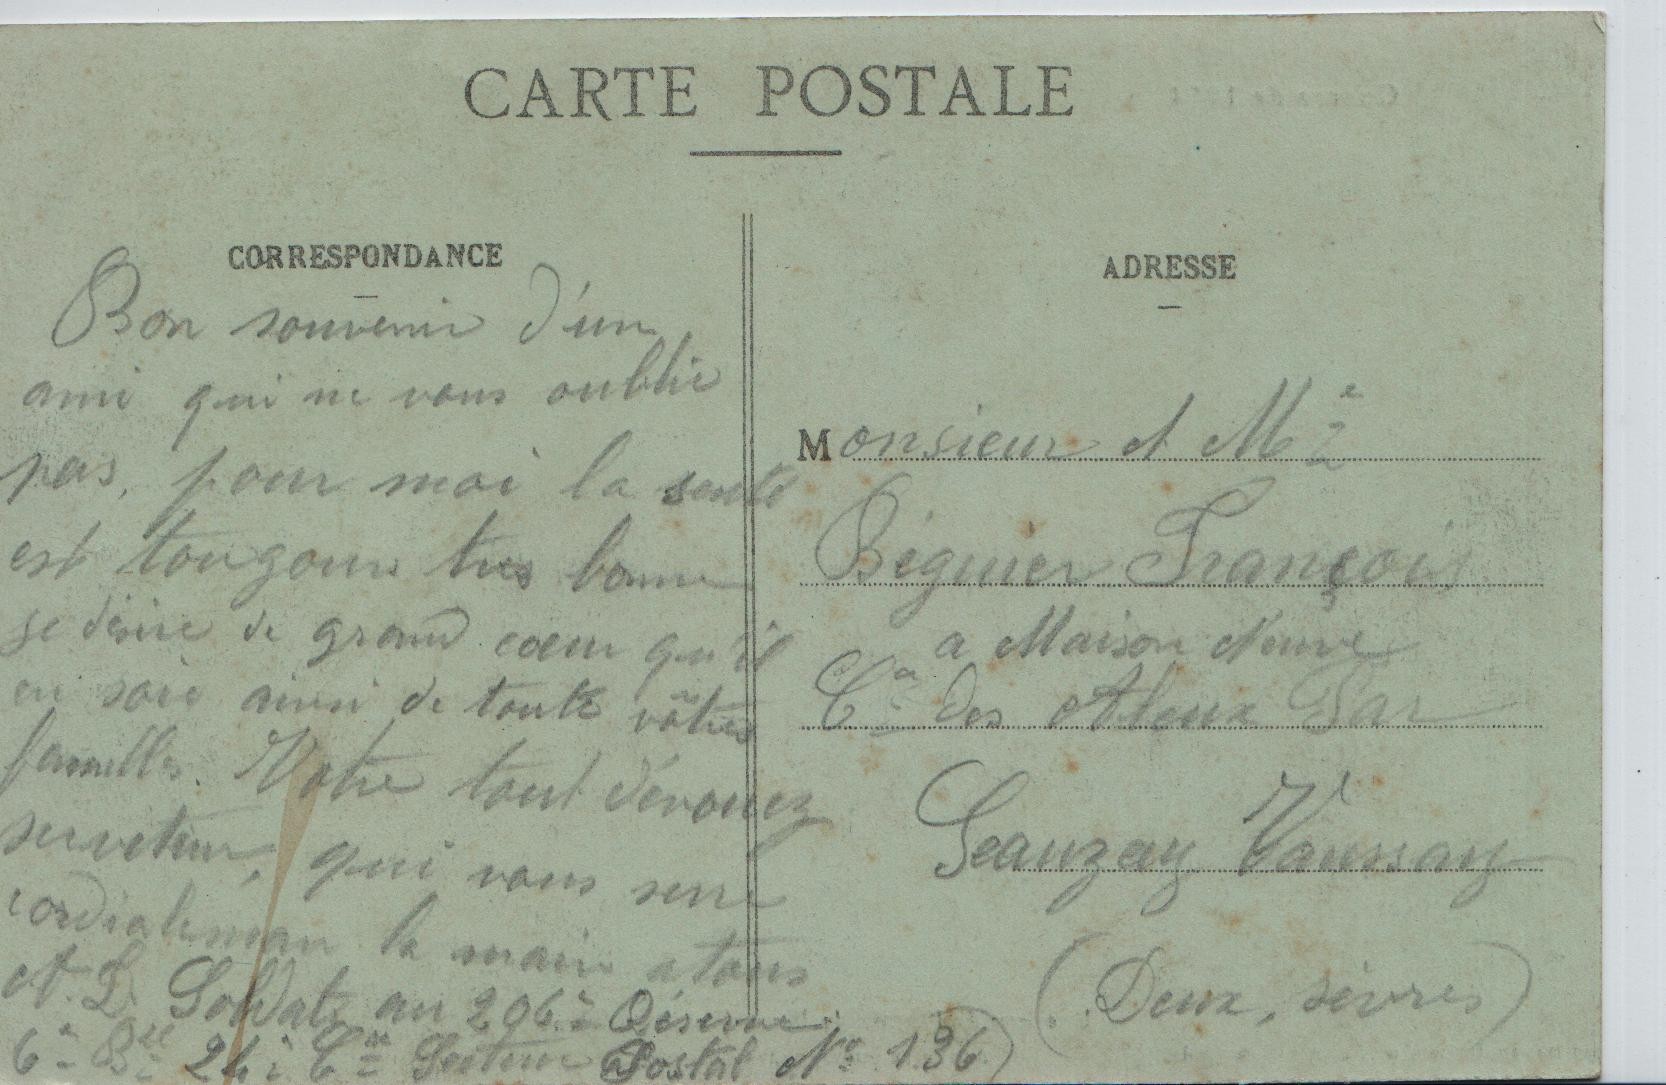 CARTE POSTALE
CORRESPONDANCE
Bon souvenir d'un
ami qui ne vous oublie
pas, pour moi la senté
est tougours tres bonne
je désire de grand cœur qu'il
en soie ainsi de toute vôtres
familles. Votre tout dévouez
serviteur, qui vous serre
cordialeman la main a tous
A. D. Soldats au 206e Réserve
6e Bon 24e Cie Secteur Postal No 136
ADRESSE
Monsieur et Mme
Béguier François
a Maison Neuve
Cne des Aleux Par
Seauzay Vaussay
(Deux, sèvres)